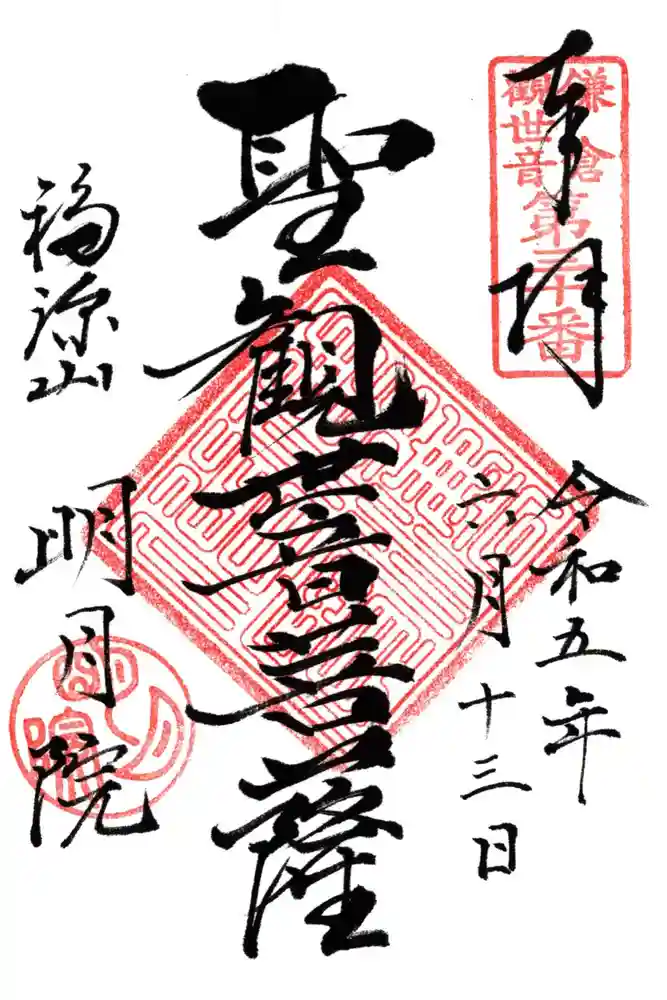 奉拝
鎌倉
觀世音
第三十番
令和五年
六月十三日
聖觀世音菩薩
福源山
明月院